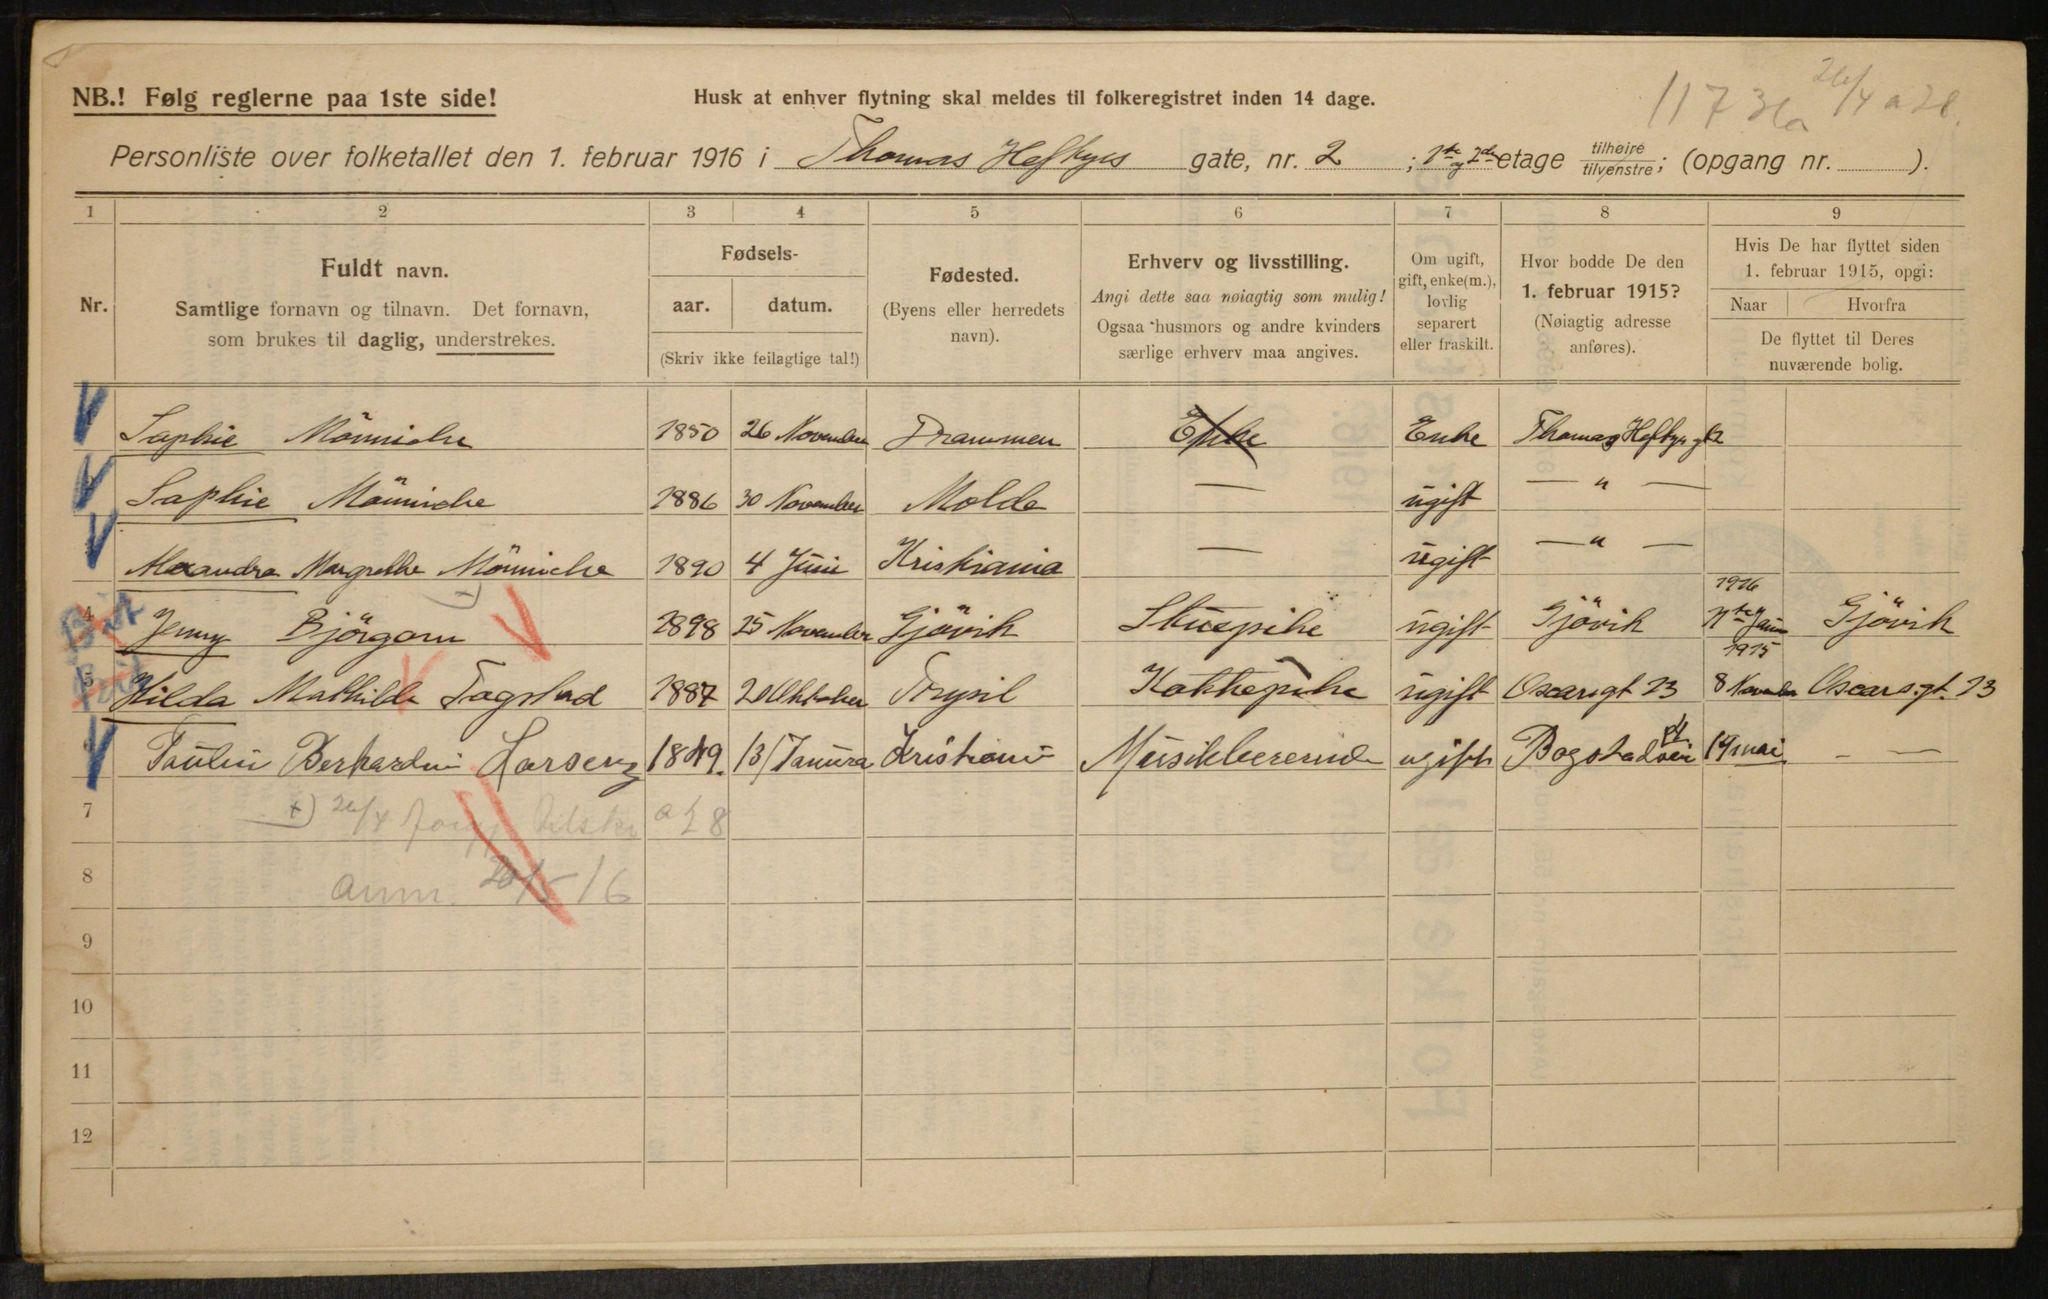 NB.! Følg reglerne paa 1ste side!
Husk at enhver flytning skal meldes til folkeregistret inden 14 dage.
Personliste over folketallet den 1. februar 1916 i Thomas Heftyes gate, nr. 2 ; 1ste og 2den etage tilhøire tilvenstre; (opgang nr. ).
1 2 3 4 5 6 7 8 9
Nr.
Fuldt navn.
Samtlige fornavn og tilnavn. Det fornavn,
som brukes til daglig, understrekes.
Fødsels-
aar. datum.
(Skriv ikke feilagtige tal!)
Fødested.
(Byens eller herredets
navn).
Erhverv og livsstilling.
Angi dette saa nøiagtig som mulig!
Ogsaa husmors og andre kvinders
særlige erhverv maa angives.
Om ugift,
gift, enke(m.),
lovlig
separert
eller fraskilt.
Hvor bodde De den
1. februar 1915?
(Nøiagtig adresse
anføres).
Hvis De har flyttet siden
1. februar 1915, opgi:
Naar Hvorfra
De flyttet til Deres
nuværende bolig.
Sophie Mönniche 1850 26 November Drammen Enke Enke Thomas Heftyes gt 2
Sophie Mönniche 1886 30 November Molde — ugift — " —
Alexandra Margrethe Mönniche 1890 4 Juni Kristiania — ugift — " —
4 Jenny Björgom 1898 25 November Gjövik Stuepike ugift Gjövik 1916 Gjövik
5 Hilda Mathilde Fagstad 1887 20 Oktober Trysil Kokkepike ugift Oscarsgt 23 1915 8 November Oscars.gt. 23
6 Paulin Berhardin Larsen 1849. 13/Januar Kristiania Musiklærerinde ugift Bogstadvei 19 mai — —
7 +) 26/4 a 28
8 anm. 20/5 16
9
10
11
12